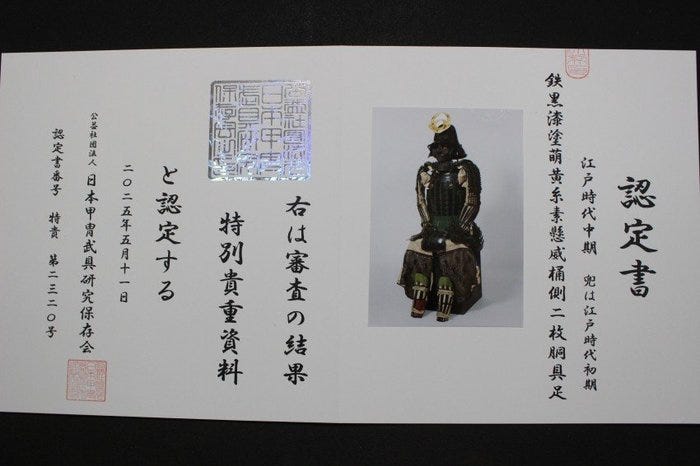 認定書
江戸時代中期　兜は江戸時代初期
鉄黒漆塗萌黄糸素懸威桶側二枚胴具足
右は審査の結果
特別貴重資料
と認定する
二〇二五年五月十一日
公益社団法人 日本甲冑武具研究保存会
認定書番号　特貴　第二三二〇号